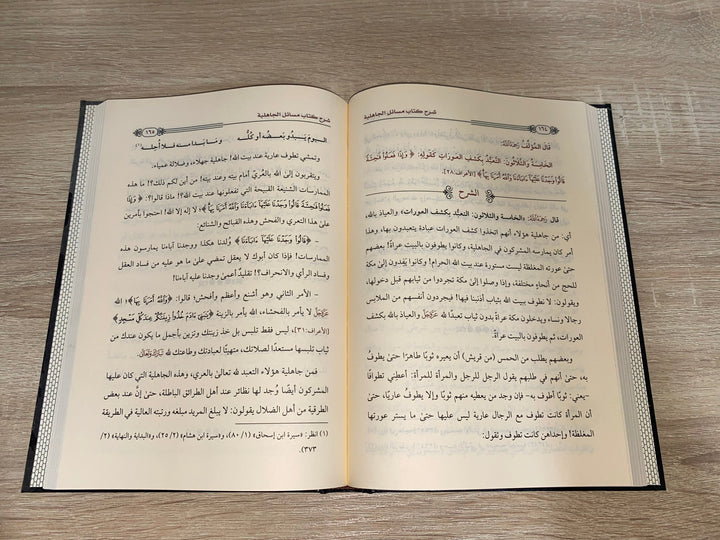 شرح كتاب مسائل الجاهلية
١٦٤
قال المؤلف رَحِمَهُ اللَّهُ:
الخامسة والثلاثون: التعبُّد بكشف العورات كقوله: ﴿وَإِذَا فَعَلُوا فَٰحِشَةً
قَالُوا وَجَدْنَا عَلَيْهَا ءَابَآءَنَا وَٱللَّهُ أَمَرَنَا بِهَا﴾ [الأعراف: ٢٨].
الشرح
قال رَحِمَهُ اللَّهُ: «الخامسة والثلاثون: التعبُّد بكشف العورات» والعياذ بالله،
أي: من جاهلية هؤلاء أنهم اتخذوا كشف العورات عبادة يتعبدون بها، وهذا
أمر كان يمارسه المشركون في الجاهلية، وكانوا يطوفون بالبيت عراةً! بعضهم
حتىٰ عورته المغلظة ليست مستورة عند بيت الله الحرام! وكانوا يَفِدون إلىٰ مكة
للحج من أنحاءٍ مختلفة، وإذا وصلوا إلىٰ مكة تجردوا من ثيابهم قبل دخولها،
ويقولون: لا نطوف ببيت الله بثياب أذنبنا فيها! فيجردون أنفسهم من الملابس
رجالا ونساء ويدخلون مكة عراةً بدون ثياب تعبدًا لله عَزَّوَجَلَّ والعياذ بالله بكشف
العورات، ثم يطوفون بالبيت عراةً.
وبعضهم يطلب من الحمس (من قريش) أن يعيره ثوبًا طاهرًا حتىٰ يطوفَ
به، حتىٰ أنهم في طلبهم يقول الرجل للرجل والمرأة للمرأة: أعطني تطوافًا
-يعني: ثوبًا أطوف به- فإن وجد من يعطيه منهم ثوبًا وإلا يطوف عاريًا، حتىٰ
أن المرأة كانت تطوف مع الرجال عارية ليس عليها حتىٰ ما يستر عورتها
المغلظة! وإحداهن كانت تطوف وتقول:
شرح كتاب مسائل الجاهلية
١٦٥
اليـوم يبـدُو بعضـه أو كلُّـه وما بـدا منه فـلا أحِـله (١)
وتمشي تطوف عارية عند بيت الله! جاهلية جهلاء، وضلالة عمياء.
ويتقربون إلىٰ الله بالعُريّ أمام بيته وعند بيته! من أين لكم ذلك؟! ما هذه
الممارسات الشنيعة القبيحة التي تفعلونها عند بيت الله؟! ماذا قالوا؟: ﴿وَإِذَا
فَعَلُوا فَٰحِشَةً قَالُوا وَجَدْنَا عَلَيْهَا ءَابَآءَنَا وَٱللَّهُ أَمَرَنَا بِهَا﴾؛ لا إله إلا الله! احتجوا بأمرين
علىٰ هذا التعري والفحش وهذه القبائح والشنائع:
- ﴿قَالُوا وَجَدْنَا عَلَيْهَا ءَابَآءَنَا﴾ وُلدنا هكذا ووجدنا آباءنا يمارسون هذه
الممارسات! فإذا كان أبوك لا يعقل تمضي علىٰ ما هو عليه من فساد العقل
وفساد الرأي والانحراف؟! تقليدٌ أعمىٰ وجدنا عليه آباءنا!
- الأمر الثاني وهو أشنع وأعظم وأفحش؛ قالوا: ﴿وَٱللَّهُ أَمَرَنَا بِهَا﴾؛ الله
عَزَّوَجَلَّ لا يأمر بالفحشاء، الله يأمر بالزينة ﴿يَٰبَنِىٓ ءَادَمَ خُذُوا زِينَتَكُمْ عِندَ كُلِّ مَسْجِدٍ﴾
[الأعراف: ٣١]، ليس فقط تلبس بل خذ زينتك وتزين بأجمل ما يكون عندك من
ثياب تلبسها مستعدًا لصلاتك، متهيئًا لعبادتك وطاعتك لله تَبَارَكَ وَتَعَالَىٰ.
فمن جاهلية هؤلاء التعبد لله تعالىٰ بالعري، وهذه الجاهلية التي كان عليها
المشركون أيضًا وُجد لها نظائر عند أهل الطرائق الباطلة، حتىٰ إنَّ عند بعض
الطرقية من أهل الضلال يقولون: لا يبلغ المريد مبلغه ورتبته العالية في الطريقة
(١) انظر: «سيرة ابن إسحاق» (١/ ٨٠)، و«سيرة ابن هشام» (٢/ ٢٥)، و«البداية والنهاية» (٢/
٣٧٣).